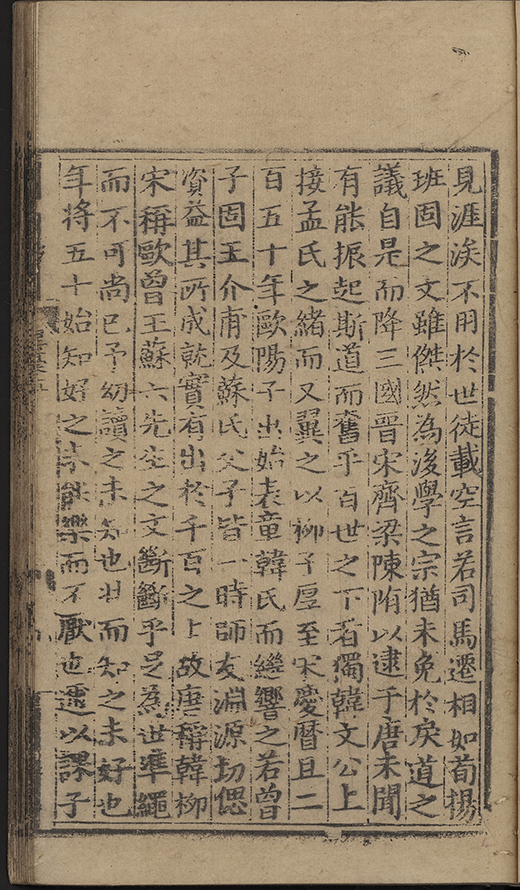 見涯涘不用於世徒載空言若司馬遷相如荀揚
班固之文雖傑然為後學之宗猶未免於戾道之
議自是而降三國晉宋齊梁陳隋以逮于唐未聞
有能振起斯道而奮乎百世之下者獨韓文公上
接孟氏之緒而又翼之以柳子厚至宋慶曆且二
百五十年歐陽子出始表章韓氏而繼響之若曾
子固王介甫及蘇氏父子皆一時師友淵源切偲
資益其所成就實有出於千百之上故唐稱韓柳
宋稱歐曾王蘇六先生之文斷斷乎足為世準繩
而不可尚已予幼讀之未知也壯而知之未好也
年將五十始知好之未能樂而不厭也遂以課子